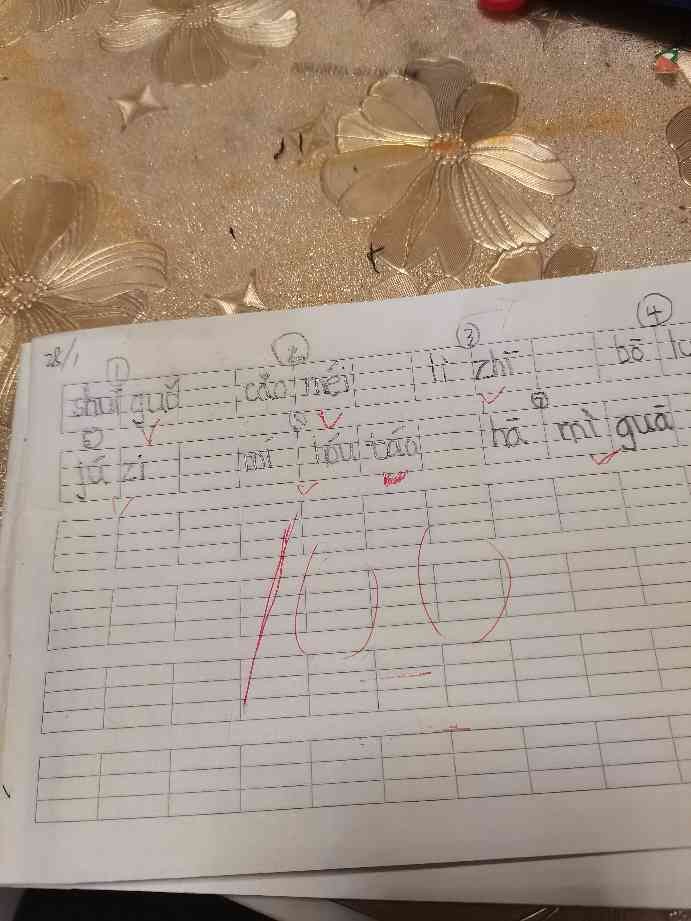 28/1
① ② ③ ④
shuǐ guǒ cǎo méi lì zhī bō lu
⑤ ⑥ ⑦
jú zi mí hóu táo hā mì guā
100